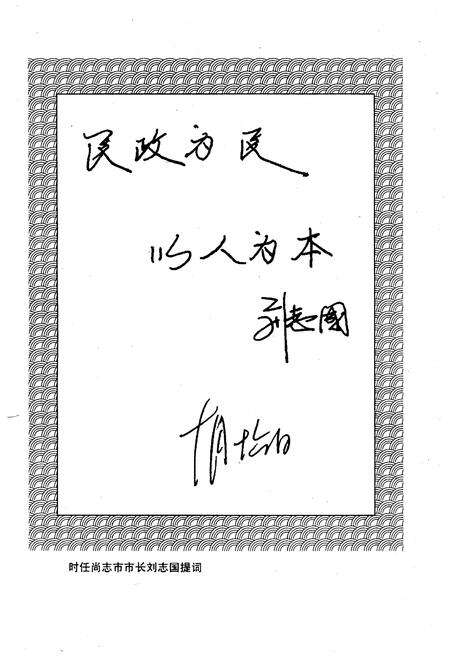 民政为民
以人为本
刘志国
十月十八日
时任尚志市市长刘志国提词